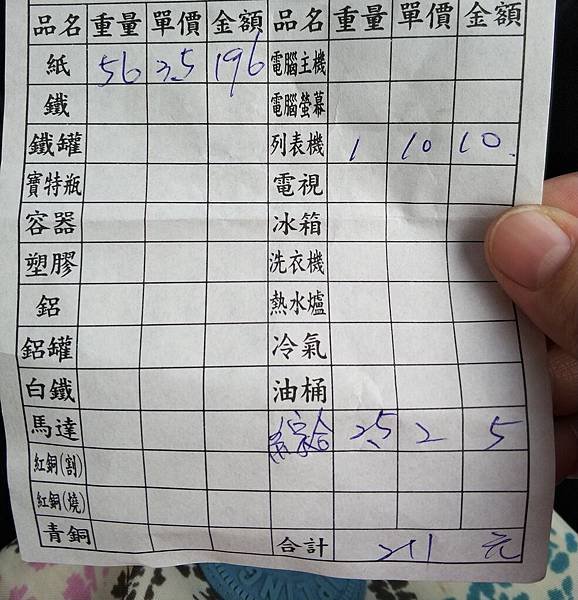 品名 重量 單價 金額 品名 重量 單價 金額
紙 56 3.5 196 電腦主機
鐵 電腦螢幕
鐵罐 列表機 1 10 10.
寶特瓶 電視
容器 冰箱
塑膠 洗衣機
鋁 熱水爐
鋁罐 冷氣
白鐵 油桶
馬達 綜合 2.5 2 5
紅銅(割)
紅銅(燒)
青銅 合計 211 元